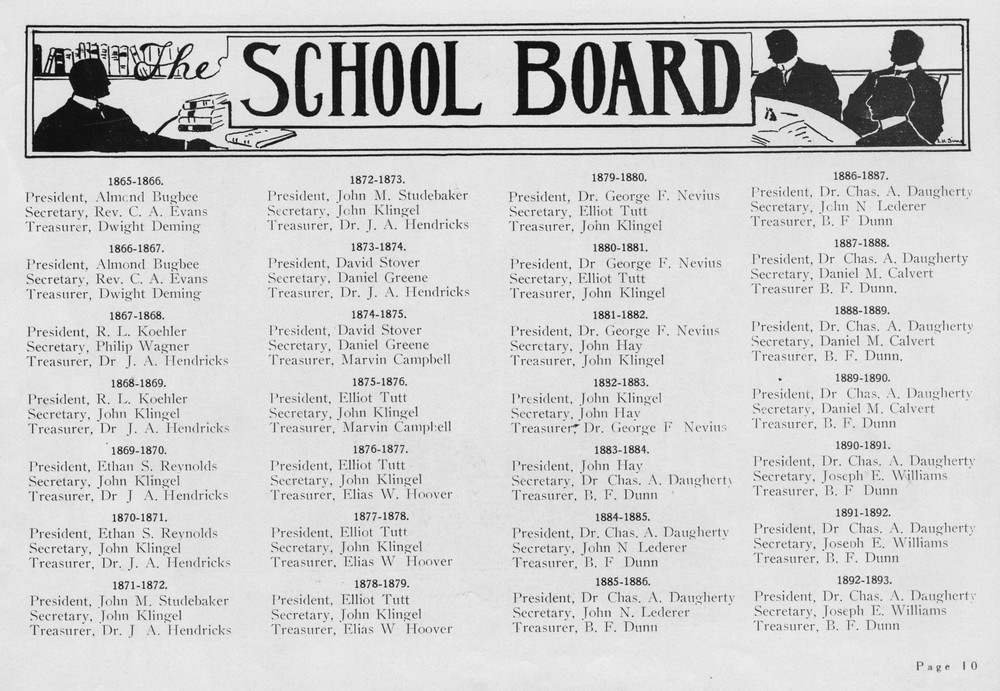 The SCHOOL BOARD
1865-1866.
President, Almond Bugbee
Secretary, Rev. C. A. Evans
Treasurer, Dwight Deming
1866-1867.
President, Almond Bugbee
Secretary, Rev. C. A. Evans
Treasurer, Dwight Deming
1867-1868.
President, R. L. Koehler
Secretary, Philip Wagner
Treasurer, Dr J. A. Hendricks
1868-1869.
President, R. L. Koehler
Secretary, John Klingel
Treasurer, Dr J. A. Hendricks
1869-1870.
President, Ethan S. Reynolds
Secretary, John Klingel
Treasurer, Dr J A. Hendricks
1870-1871.
President, Ethan S. Reynolds
Secretary, John Klingel
Treasurer, Dr. J. A. Hendricks
1871-1872.
President, John M. Studebaker
Secretary, John Klingel
Treasurer, Dr. J A. Hendricks
1872-1873.
President, John M. Studebaker
Secretary, John Klingel
Treasurer, Dr. J. A. Hendricks
1873-1874.
President, David Stover
Secretary, Daniel Greene
Treasurer, Dr. J. A. Hendricks
1874-1875.
President, David Stover
Secretary, Daniel Greene
Treasurer, Marvin Campbell
1875-1876.
President, Elliot Tutt
Secretary, John Klingel
Treasurer, Marvin Campbell
1876-1877.
President, Elliot Tutt
Secretary, John Klingel
Treasurer, Elias W. Hoover
1877-1878.
President, Elliot Tutt
Secretary, John Klingel
Treasurer, Elias W Hoover
1878-1879.
President, Elliot Tutt
Secretary, John Klingel
Treasurer, Elias W Hoover
1879-1880.
President, Dr. George F. Nevius
Secretary, Elliot Tutt
Treasurer, John Klingel
1880-1881.
President, Dr George F. Nevius
Secretary, Elliot Tutt
Treasurer, John Klingel
1881-1882.
President, Dr. George F. Nevius
Secretary, John Hay
Treasurer, John Klingel
1882-1883.
President, John Klingel
Secretary, John Hay
Treasurer, Dr. George F Nevius
1883-1884.
President, John Hay
Secretary, Dr Chas. A. Daugherty
Treasurer, B. F. Dunn
1884-1885.
President, Dr. Chas. A. Daugherty
Secretary, John N Lederer
Treasurer, B. F Dunn
1885-1886.
President, Dr Chas. A. Daugherty
Secretary, John N. Lederer
Treasurer, B. F. Dunn
1886-1887.
President, Dr. Chas. A. Daugherty
Secretary, John N Lederer
Treasurer, B. F Dunn
1887-1888.
President, Dr Chas. A. Daugherty
Secretary, Daniel M. Calvert
Treasurer B. F. Dunn.
1888-1889.
President, Dr. Chas. A. Daugherty
Secretary, Daniel M. Calvert
Treasurer, B. F. Dunn.
1889-1890.
President, Dr Chas. A. Daugherty
Secretary, Daniel M. Calvert
Treasurer, B. F. Dunn
1890-1891.
President, Dr. Chas. A. Daugherty
Secretary, Joseph E. Williams
Treasurer, B. F Dunn
1891-1892.
President, Dr Chas. A. Daugherty
Secretary, Joseph E. Williams
Treasurer, B. F. Dunn
1892-1893.
President, Dr. Chas. A. Daugherty
Secretary, Joseph E. Williams
Treasurer, B. F. Dunn
Page 10